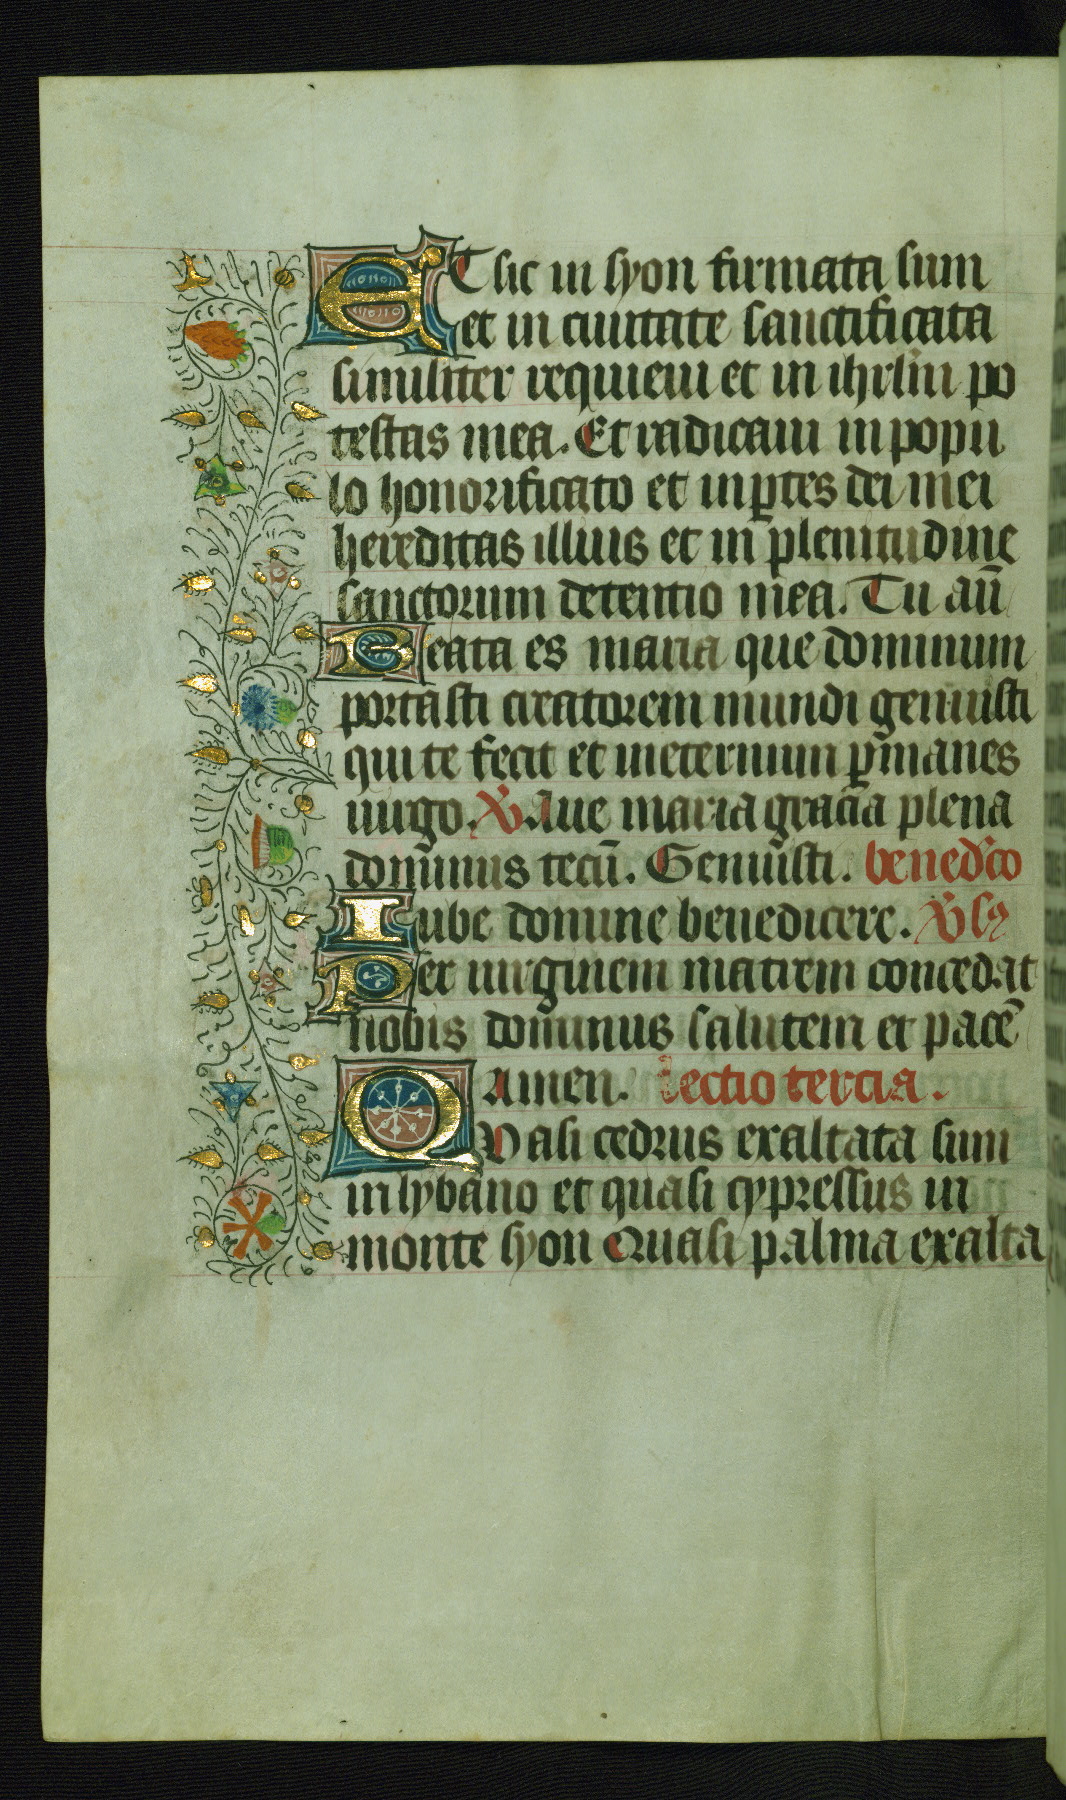 ET sic in syon firmata sum
et in ciuitate sanctificata
similiter requieui et in ihrl̄m po
testas mea. Et radicaui in popu
lo honorificato et in ꝑtes dei mei
hereditas illius et in plenitudine
sanctorum detentio mea. Tu aū
Beata es maria que dominum
portasti creatorem mundi genuisti
qui te fecit et ineternum ꝑmanes
uirgo. ℣. Aue maria gracia plena
dominus tecū. Genuisti. bened̄co
Iube domne benedicere. ℣sꝫ
Per uirginem matrem concedat
nobis dominus salutem et pacē
amen. Lectio tercia.
QVasi cedrus exaltata sum
in lybano et quasi cypressus in
monte syon Quasi palma exalta